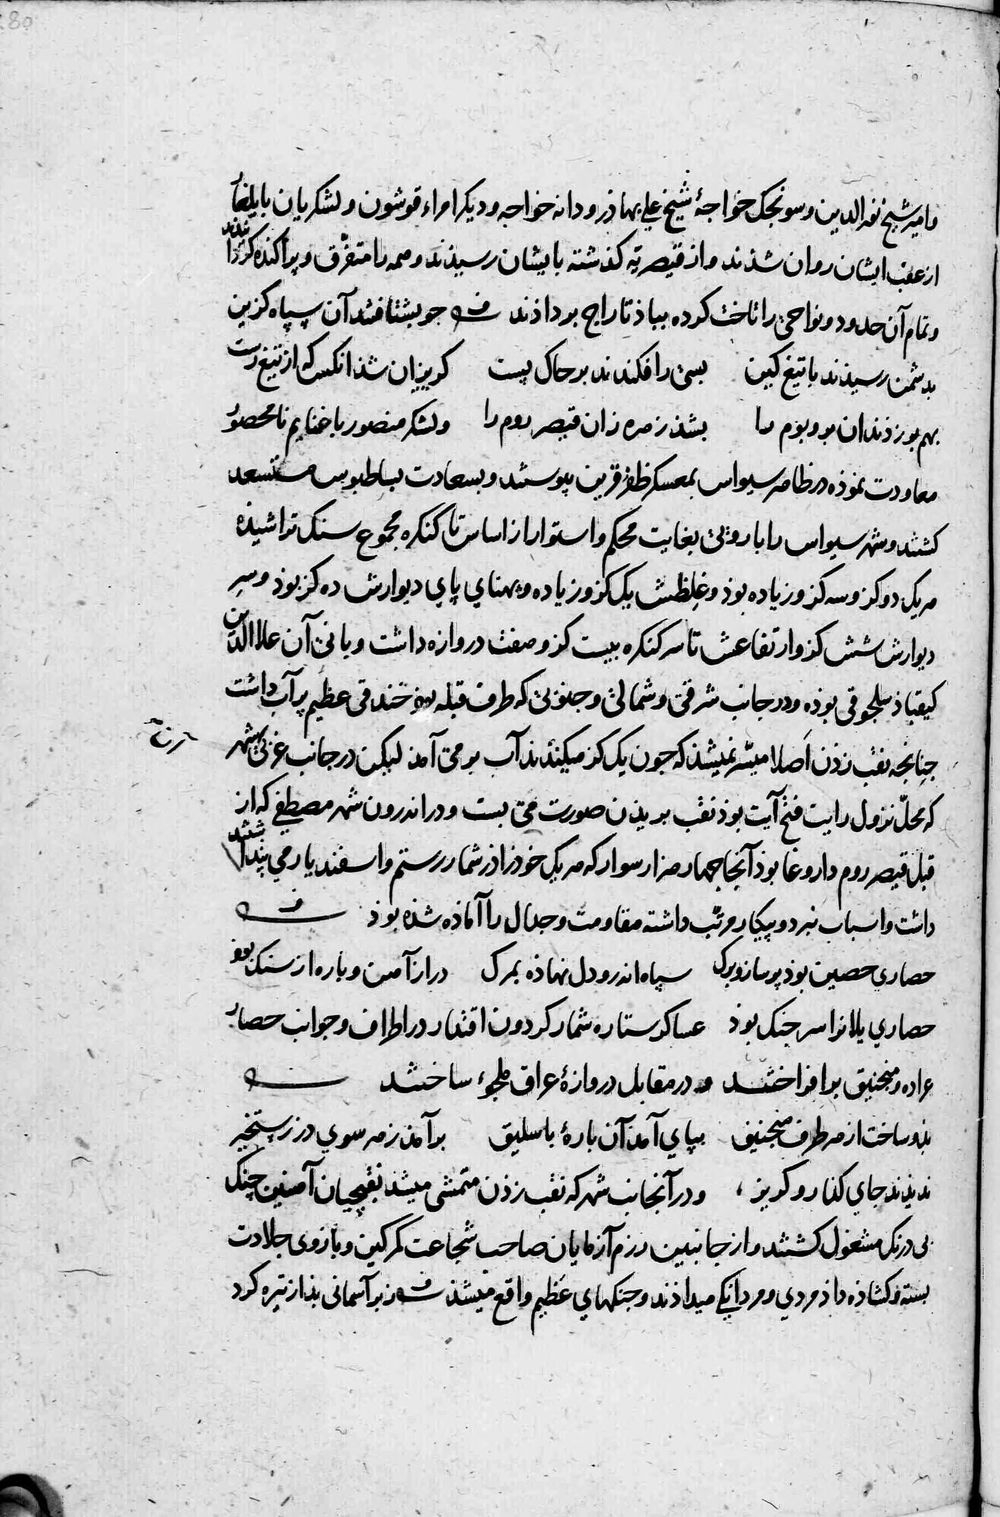 80
و امیر شیخ نور الدین و سونجک خواجهٔ شیخ علی بهاذر و دانه خواجه و دیکر امراء قوشون و لشکریان بایلغار
از عقب ایشان روان شذند و از قیصریه کذشته بایشان رسیذند و همه را متفرّق و پراکنده کردانیدند
و تمام آن حدود و نواحی را تاخت کرده بباذ تاراج برداذند جو بشتافتند آن سپاه کزین
بدشمن رسیذند با تیغ کین بسی را فکندند بر خاک پست کریزان شذ انکس که از تیغ رست
بهم بر زذند ان بر و بوم را بشذ زهره زان قیصر روم را و لشکر منصور با غنایم نامحصور
معاودت نموذه در ظاهر سیواس بمعسکر ظفر قرین پیوستند و بسعادت بساطبوس مستسعد
کشتند و شهر سیواس را باروئی بغایت محکم و استوار از اساس تا کنکره مجموع سنک تراشیذه
هر یک دو کز و سه کز و زیاده بوذ و غلظش یک کز و زیاده و پهنای پای دیوارش ده کز بوذ و سر
دیوارش شش کز و ارتفاعش تا سر کنکره بیست کز و هفت دروازه داشت و بانی آن علاا الدین
کیقباذ سلجوقی بوذه و در جانب شرقی و شمالی و جنوبی که طرف قبله بوذ خندقی عظیم پر آب داشت
جنانجه نقب زذن اصلا میسّر نمیشذ که جون یک کز میکندند آب بر می آمذ لیکن در جانب غربی شهر
که محلّ نزول رایت فتح آیت بوذ نقب بریذن صورت می بست و در اندرون شهر مصطفی که از
قبل قیصر روم داروغا بوذ آنجا جهار هزار سوار که هر یک خوذ را در شمار رستم و اسفندیار می پنداشتند
داشت و اسباب نبرد و پیکار مرتّب داشته مقاومت و جدال را آماذه شذه بوذ
حصاری حصین بوذ پر ساز و برک سپاه اندرو دل نهاذه بمرک در از آهن و باره از سنک بوذ
حصاری یلانرا سر جنک بوذ عساکر ستاره شمار کردون اقتدار در اطراف و جوانب حصار
عراده و منجنیق برافراختند و در مقابل دروازهٔ عراق ملجوء ساختند
بذو ساخت از هر طرف منجنیق بپای آمذ آن بارهٔ باسلیق برآمذ ز هر سوی در رستخیز
ندیذند جای کنار و کریز و در آنجانب شهر که نقب زذن متمشی میشذ نقبجیان آهنین جنک
بی درنک مشغول کشتند و از جانبین رزم آزمایان صاحب شجاعت کمر کین و بازوی جلادت
بسته و کشاذه داذ مردی و مردانکی میداذند و جنکهای عظیم واقع میشذ زبر آسمانی بذ از تیره کرد